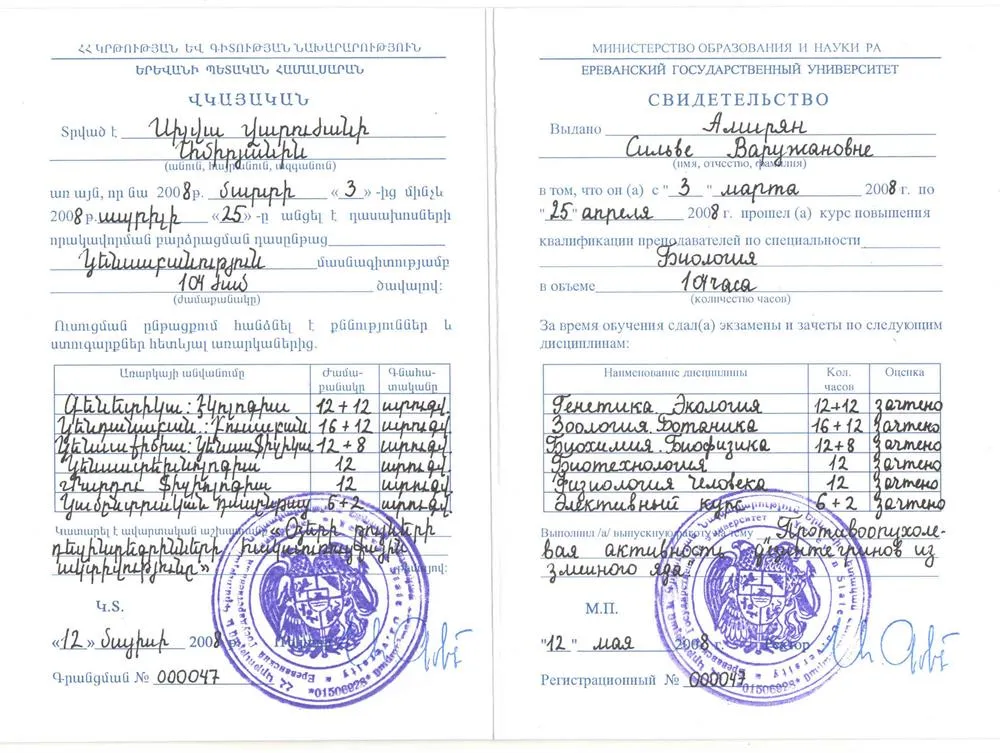 ՀՀ ԿՐԹՈՒԹՅԱՆ ԵՎ ԳԻՏՈՒԹՅԱՆ ՆԱԽԱՐԱՐՈՒԹՅՈՒՆ
ԵՐԵՎԱՆԻ ՊԵՏԱԿԱՆ ՀԱՄԱԼՍԱՐԱՆ
ՎԿԱՅԱԿԱՆ
Տրված է Սիլվա Վարուժանի
Ամիրյանին
(անուն, հայրանուն, ազգանուն)
առ այն, որ նա 2008թ. մարտի «3»-ից մինչև
2008թ. ապրիլի «25»-ը անցել է դասախոսների
որակավորման բարձրացման դասընթաց
Կենսաբանություն մասնագիտությամբ
104 ժամ ծավալով:
(ժամաքանակը)
Ուսուցման ընթացքում հանձնել է քննություններ և
ստուգարքներ հետևյալ առարկաներից.
Առարկայի անվանումը Ժամա-քանակը Գնահա-տականը
Գենետիկա: Էկոլոգիա 12+12 ստուգվ.
Կենդանաբան.: Բուսաբան. 16+12 ստուգվ.
Կենսաքիմիա: Կենսաֆիզիկա 12+8 ստուգվ.
Կենսատեխնոլոգիա 12 ստուգվ.
Մարդու Ֆիզիոլոգիա 12 ստուգվ.
Կամընտրական դասընթաց 6+2 ստուգվ.
Կատարել է ավարտական աշխատանք «Օձերի թույների
դեզինտեգրինների հակաուռուցքային
ակտիվությունը»
Կ.Տ.
«12» մայիսի 2008թ.
Գրանցման № 000047
МИНИСТЕРСТВО ОБРАЗОВАНИЯ И НАУКИ РА
ЕРЕВАНСКИЙ ГОСУДАРСТВЕННЫЙ УНИВЕРСИТЕТ
СВИДЕТЕЛЬСТВО
Выдано Амирян
Сильве Варужановне
(имя, отчество, фамилия)
в том, что он (а) с "3" марта 2008 г. по
"25" апреля 2008 г. прошел (а) курс повышения
квалификации преподавателей по специальности
Биология
в объеме 104 часа
(количество часов)
За время обучения сдал(а) экзамены и зачеты по следующим
дисциплинам:
Наименование дисциплины Кол. часов Оценка
Генетика. Экология 12+12 зачтено
Зоология. Ботаника 16+12 зачтено
Биохимия. Биофизика 12+8 зачтено
Биотехнология 12 зачтено
Физиология человека 12 зачтено
Элективный курс 6+2 зачтено
Выполнил /а/ выпускную работу на тему „Противоопухоле-
вая активность дезинтегринов из
змеиного яда"
М.П.
"12" мая 2008 г. Ректор
Регистрационный № 000047
*01506928*
*01506928*